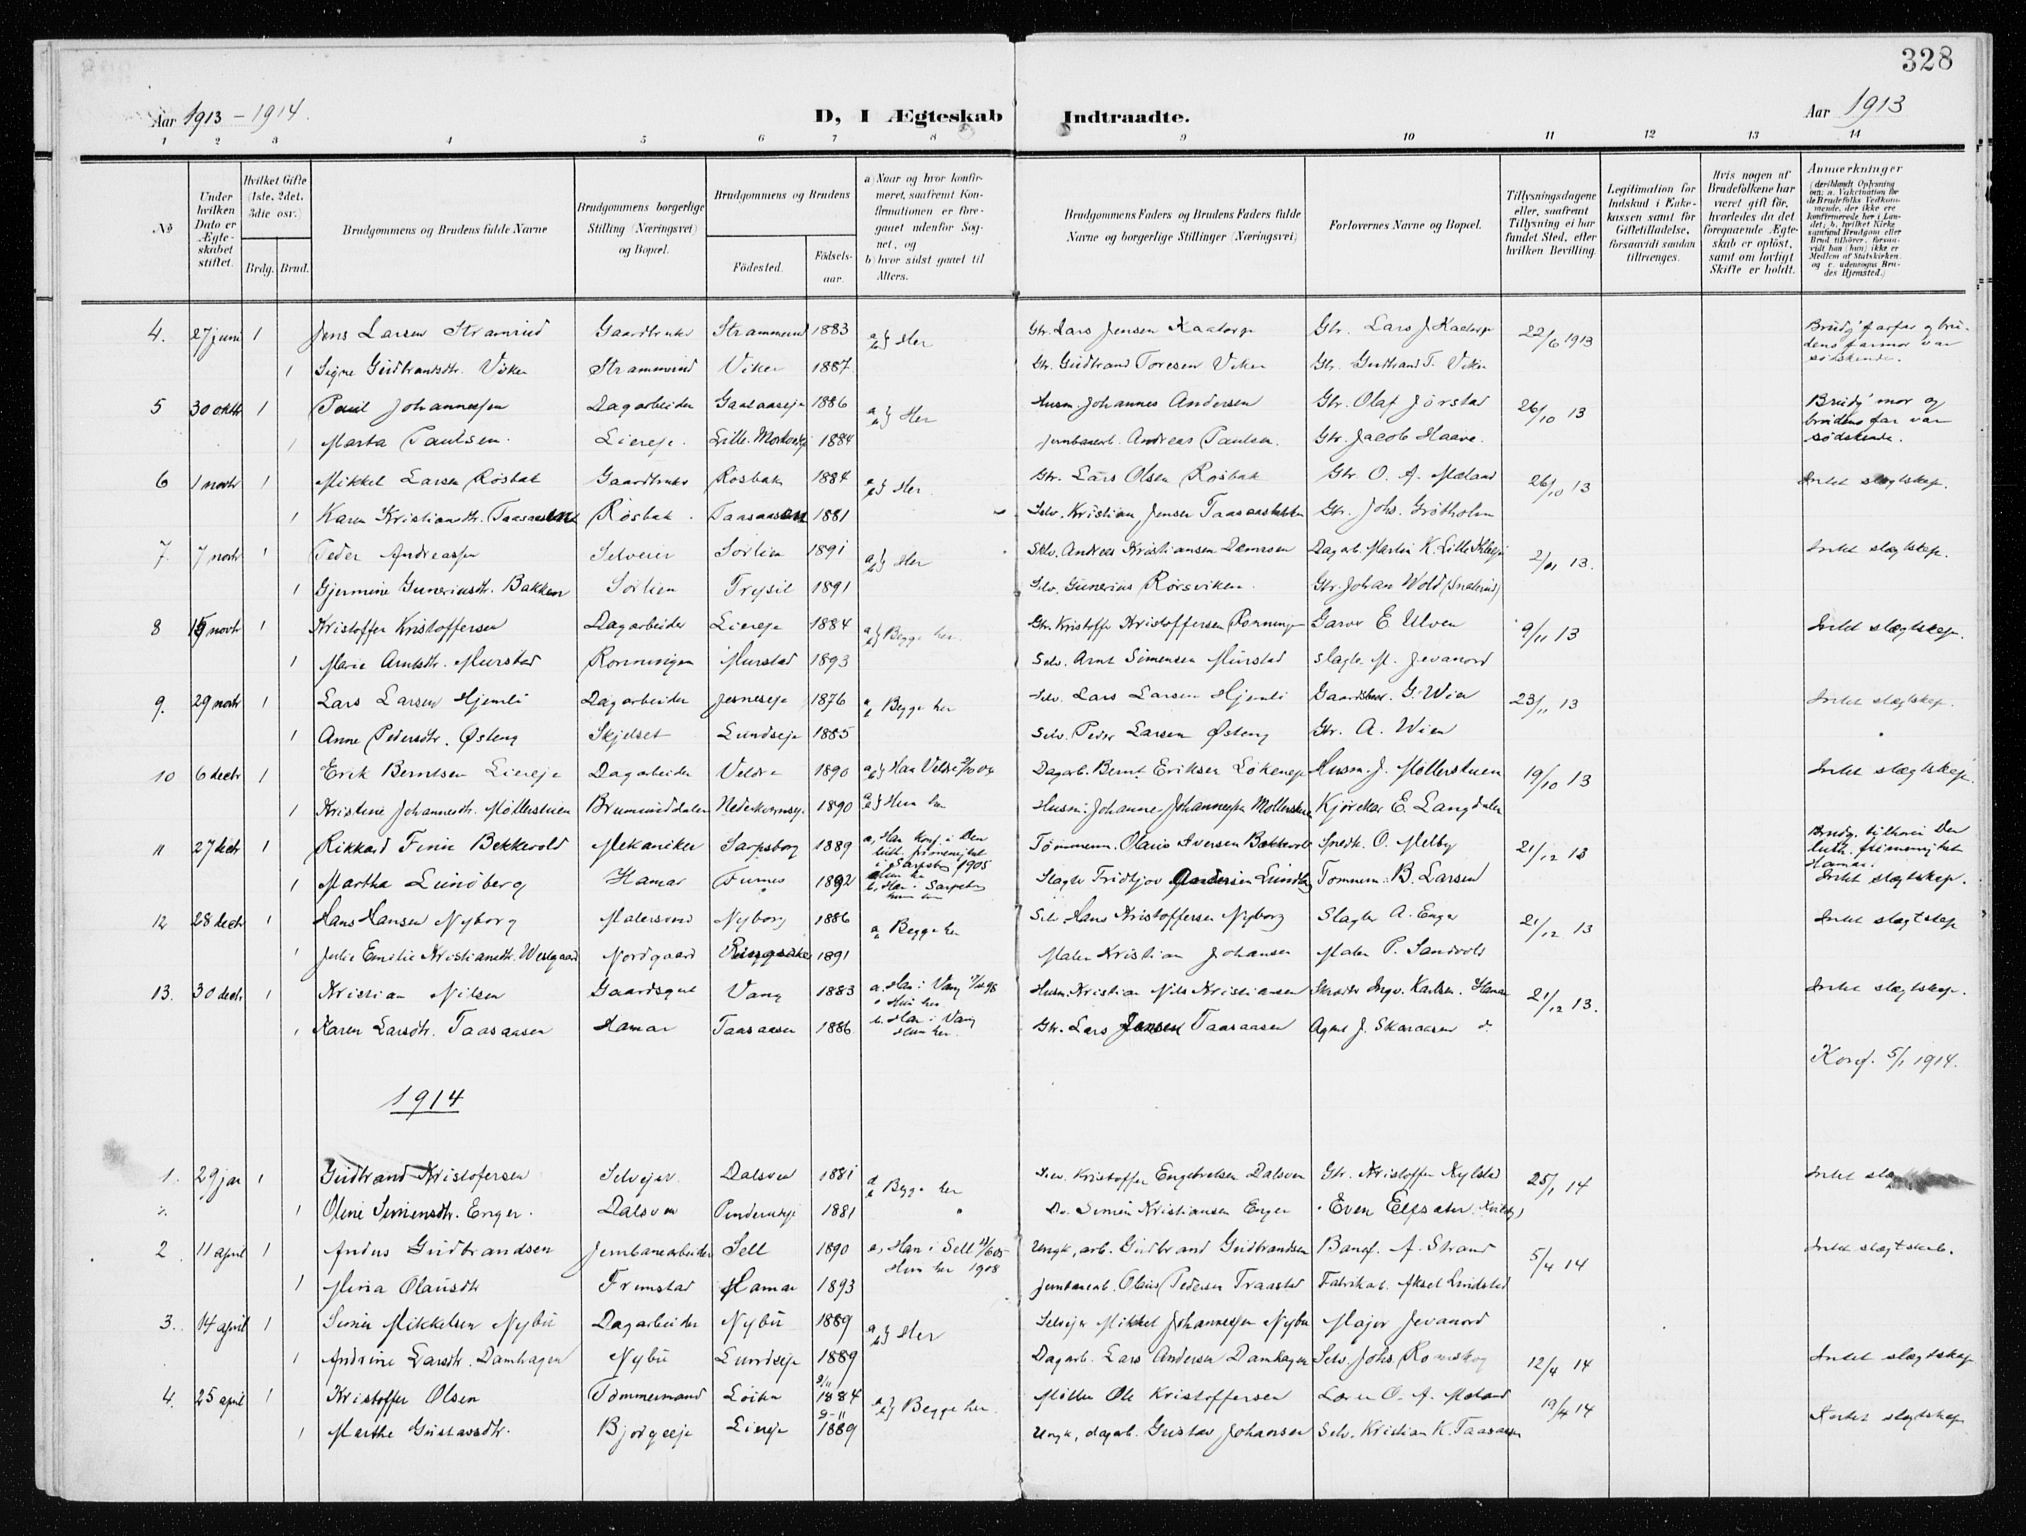 328
Aar 1913 - 1914.
D, I Ægteskab Indtraadte.
Aar 1913
1 2 3 4 5 6 7 8 9 10 11 12 13 14
No
Under hvilken Dato er Ægteskabet stiftet.
Hvilket Gifte (1ste, 2det, 3die osv.)
Brdg. Brud.
Brudgommens og Brudens fulde Navne
Brudgommens borgerlige Stilling (Næringsvei) og Bopæl.
Brudgommens og Brudens
Fødested.
Fødselsaar.
a) Naar og hvor konfirmeret, saafremt Konfirmationen er foregaaet udenfor Sognet, og
b) hvor sidst gaaet til Alters.
Brudgommens Faders og Brudens Faders fulde Navne og borgerlige Stillinger (Næringsvei)
Forlovernes Navne og Bopæl.
Tillysningsdagene eller, saafremt Tillysning ei har fundet Sted, efter hvilken Bevilling.
Legitimation for Indskud i Enkekassen samt for Giftetilladelse, forsaavidt saadan tiltrænges.
Hvis nogen af Brudefolkene har været gift før, hvorledes da det foregaaende Ægteskab er opløst, samt om lovligt Skifte er holdt.
Anmærkninger
4. 27 juni 1 Jens Larsen Stramrud Gaardbruker Strammerud 1883 a/b} Her Gbr. Lars Jensen Kaatorp Gbr. Lars J. Kaatorp 22/6 1913 Brudg' farfar og brudens farmor var sødskende.
1 Signe Gudbrandsdtr. Viker Strammerud Viker 1887. Gbr. Gudbrand Toresen Viker Gbr. Gudbrand T. Viker
5 30 oktr 1 Paul Johannessen Dagarbeider 1886 a/b} Her Husm. Johannes Andersen Gbr. Olaf Jørstad 26/10 13 Brudg' mor og brudens far var sødskende.
1 Marta Paulsen. Liereje. 1884 Jernbanearb. Andreas Paulsen. Gbr. Jacob Haave.
6 1 novbr 1 Mikkel Larsen Rosbak Gaardbruker Rosbak 1884 a/b} Her. Gbr. Lars Olsen Rosbak Gbr. O. A. Mæland 26/10 13 Intet slægtskap.
1 Karen Kristiansdtr. Taasaasen Røsbak. Taasaasen 1881 Selv. Kristian Jensen Taasaasbakken Gbr. Johs. Grøtholm
7. 7 novbr 1 Peder Andreassen Selveier Sørlien 1891 a/b} Her Selv. Andreas Kristiansen Dagarb. Martin K. 2/11 13. Intet slægtskap.
1 Gjermine Gunneriusdtr. Bakken Sørlien Trysil 1891 Selv. Gunerius Rørsviken. Gbr. Johan Wold
8 15 novbr 1 Kristoffer Kristoffersen Dagarbeider Liereje 1884 a/b} Begge her. Gbr. Kristoffer Kristoffersen Rønningen Garver E Ulven 9/11 13 Intet slægtskap.
1 Marie Arntsdtr. Murstad Rønningen Murstad 1893 Selv. Arnt Simensen Murstad Slagter M. Jevanord
9. 29 novbr 1 Lars Larsen Hjemli Dagarbeider 1876 a/b Begge her Selv. Lars Larsen Hjemli G. Wien 23/11 13 Intet slægtskap.
1 Anne Pedersdtr. Østeng Skjelset Lundseje 1885 Selv. Peder Larsen Østeng Gbr. A. Wien
10 6 decbr 1 Erik Berntsen Liereje Dagarbeider Veldre 1890 a/b} Han Veldre Dagarb. Bernt Eriksen Løkeneje Husm. J. Møllerstuen 19/10 13 Intet slægtskap.
1 Kristine Johannesdtr. Møllerstuen Brumunddalen 1890 a/b} Hun her Husm. Johannes Johannessen Møllerstuen Kjører E. Langdalen
11 27 decbr 1 Rikkard Finn Bekkevold Mekaniker Sarpsborg 1889 a, Han konf. i Den luth. frimenighet i Sarpsborg 1905 Tømmerm. Olaus Iversen Bækkevold O. Melby 21/12 13 Brudg. tilhører Den luth. frimenighet Hamar.
1 Martha Lundberg Hamar Furnes 1892 b. Han i Sarpsborg hun her Slagter Fridtjov Andersen Lundberg Tømmerm: B. Larsen Intet slægtskap.
12 28 decbr 1 Hans Hansen Nyborg Malersvend Nyborg 1886 a/b Begge her Selv. Hans Kristoffersen Nyborg Slagter A. Enger 21/12 13 Intet slægtskap
1 Julie Emilie Kristiansdtr. Westgaard Nordgaard Ringsaker 1891 Maler Kristian Johansen Maler P. Sandvold
13. 30 decbr 1 Kristian Nilsen Gaardsgut Vang 1883 a. Han i Vang Hun her. Husm. Kristian Nils Kristiansen Skrædder Ingv. Karlsen. Hamar 21/12 13. Intet slægtskap.
1 Karen Larsdtr. Taasaasen Hamar Taasaasen 1886 b. Han i Vang Hun her. Gbr. Lars Jensen Taasaasen Agent J. Skaraasen do
Konf. 5/1 1914.
1914
1. 29 jan 1 Gudbrand Kristofersen Selvejer Dalsven 1881 a/b Begge her Selv. Kristoffer Engebretsen Dalsven Gbr. Kristoffer Kylstad 25/1 14 Intet
1 Oline Simensdtr. Enger. Dalsven 1881 Do. Simen Kristiansen Enger Even
2 11 april 1 Anders Gudbrandsen Jernbanearbeider Sell 1890 a, Han i Sell Hun her 1908 Ungk, arb. Gudbrand Gudbrandsen A. Strand 5/4 14 Intet slægtskab.
1 Mina Olausdtr Frumstad Hamar 1893 Jernbanearb. Olaus Pedersen Traastad Fabrikarb. Aksel Lundstad
3. 14 april 1 Simen Mikkelsen Nybu Dagarbeider Nybu 1889 a/b} Her Selvejer Mikkel Johannessen Nybu Major Jevanord
1 Andrine Larsdtr. Damhagen Nybu Lundseje 1889 Dagarb. Lars Andersen Damhagen Selv. Johs. Romskog 12/4 14 Intet slægtskap
4. 25 april 1 Kristoffer Olsen Tømmermand 9/11 1884 a/b} Begge her. Møller Ole Kristoffersen O. A. Mæland 19/4 14
1 Marthe Gustavsdtr. Bjørgeeje Liereje 9-11 1889 Ungk, dagarb. Gustav Johansen Selv. Kristian K. Taasaasen Intet slægtskap